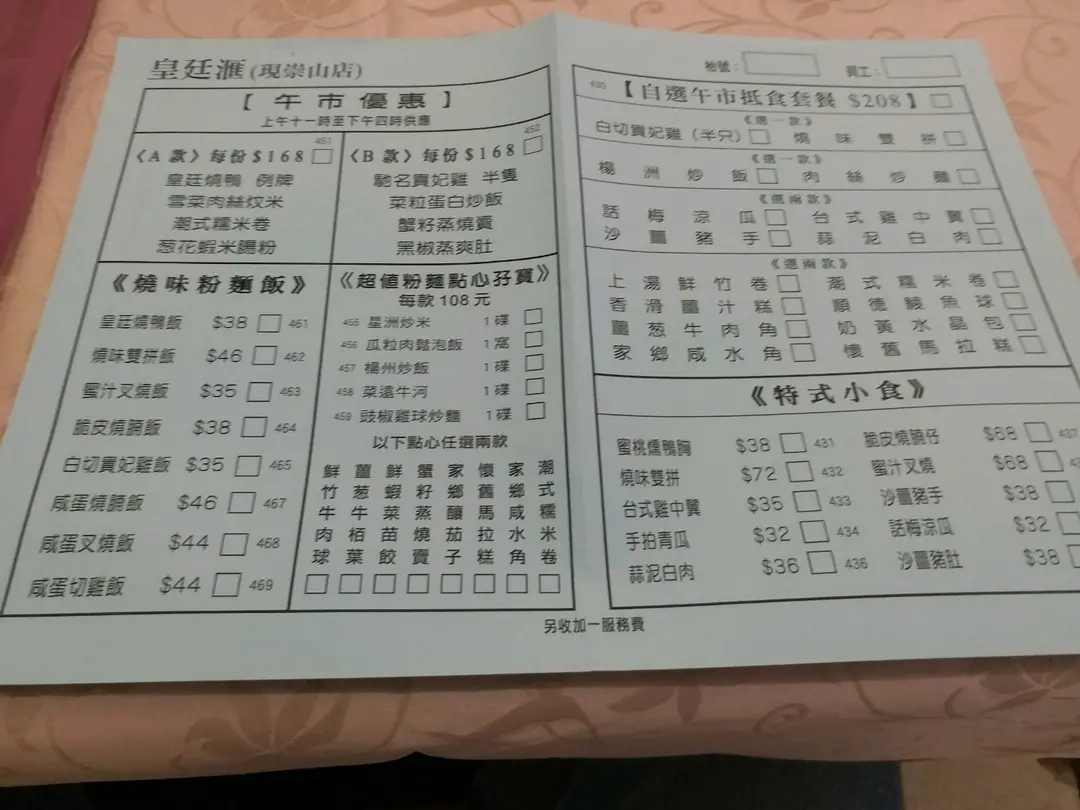 皇廷滙(現崇山店)
【午市優惠】
上午十一時至下午四時供應
451
《A 款》每份$168
皇廷燒鴨 例牌
雪菜肉絲炆米
潮式糯米卷
葱花蝦米腸粉
452
《B 款》每份$168
馳名貴妃雞 半隻
菜粒蛋白炒飯
蟹籽蒸燒賣
黑椒蒸爽肚
《燒味粉麵飯》
皇廷燒鴨飯 $38 461
燒味雙拼飯 $46 462
蜜汁叉燒飯 $35 463
脆皮燒腩飯 $38 464
白切貴妃雞飯 $35 465
咸蛋燒腩飯 $46 467
咸蛋叉燒飯 $44 468
咸蛋切雞飯 $44 469
《超值粉麵點心孖寶》
每款108元
455 星洲炒米 1碟
456 瓜粒肉鬆泡飯 1窩
457 楊州炒飯 1碟
458 菜遠牛河 1碟
459 豉椒雞球炒麵 1碟
以下點心任選兩款
鮮竹牛肉球
薑葱牛栢葉
鮮蝦菜苗餃
蟹籽蒸燒賣
家鄉釀茄子
懷舊馬拉糕
家鄉咸水角
潮式糯米卷
枱號：
員工：
430 【自選午市抵食套餐 $208】
《選一款》
白切貴妃雞(半只) 燒味雙拼
《選一款》
楊洲炒飯 肉絲炒麵
《選兩款》
話梅涼瓜 台式雞中翼
沙薑豬手 蒜泥白肉
《選兩款》
上湯鮮竹卷 潮式糯米卷
香滑薑汁糕 順德鯪魚球
薑葱牛肉角 奶黃水晶包
家鄉咸水角 懷舊馬拉糕
《特式小食》
蜜桃燻鴨胸 $38 431 脆皮燒腩仔 $68 437
燒味雙拼 $72 432 蜜汁叉燒 $68
台式雞中翼 $35 433 沙薑豬手 $38
手拍青瓜 $32 434 話梅涼瓜 $32
蒜泥白肉 $36 436 沙薑豬肚 $38
另收加一服務費